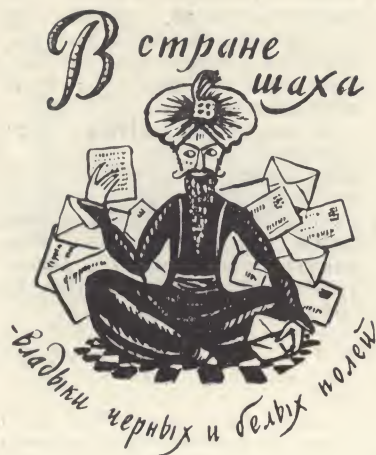 В стране
шаха
-владыки черных и белых полей